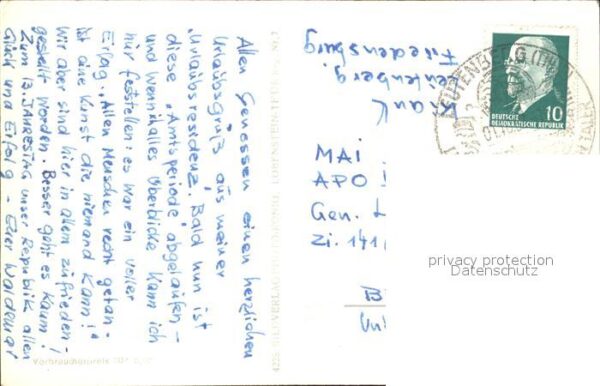 Allen Genossen einen herzlichen
Urlaubsgruß aus meiner
„Urlaubsresidenz". Bald nun ist
diese „Amtsperiode" abgelaufen –
und wenn ich alles überblicke kann ich
nur feststellen: es war ein voller
Erfolg. „Allen Menschen recht getan –
ist eine Kunst die niemand kann!"
Wir aber sind hier in allem zufrieden –
gestellt worden. Besser geht es kaum!
Zum 13. JAHRESTAG unser Republik allen
Glück und Erfolg – Euer Waldemar
Verbraucherpreis
Friedensburg
Leutenberg
MAI
APO
Gen.
Zi. 141
LEUTENBERG (THÜR
10
DEUTSCHE
DEMOKRATISCHE REPUBLIK
privacy protection
Datenschutz